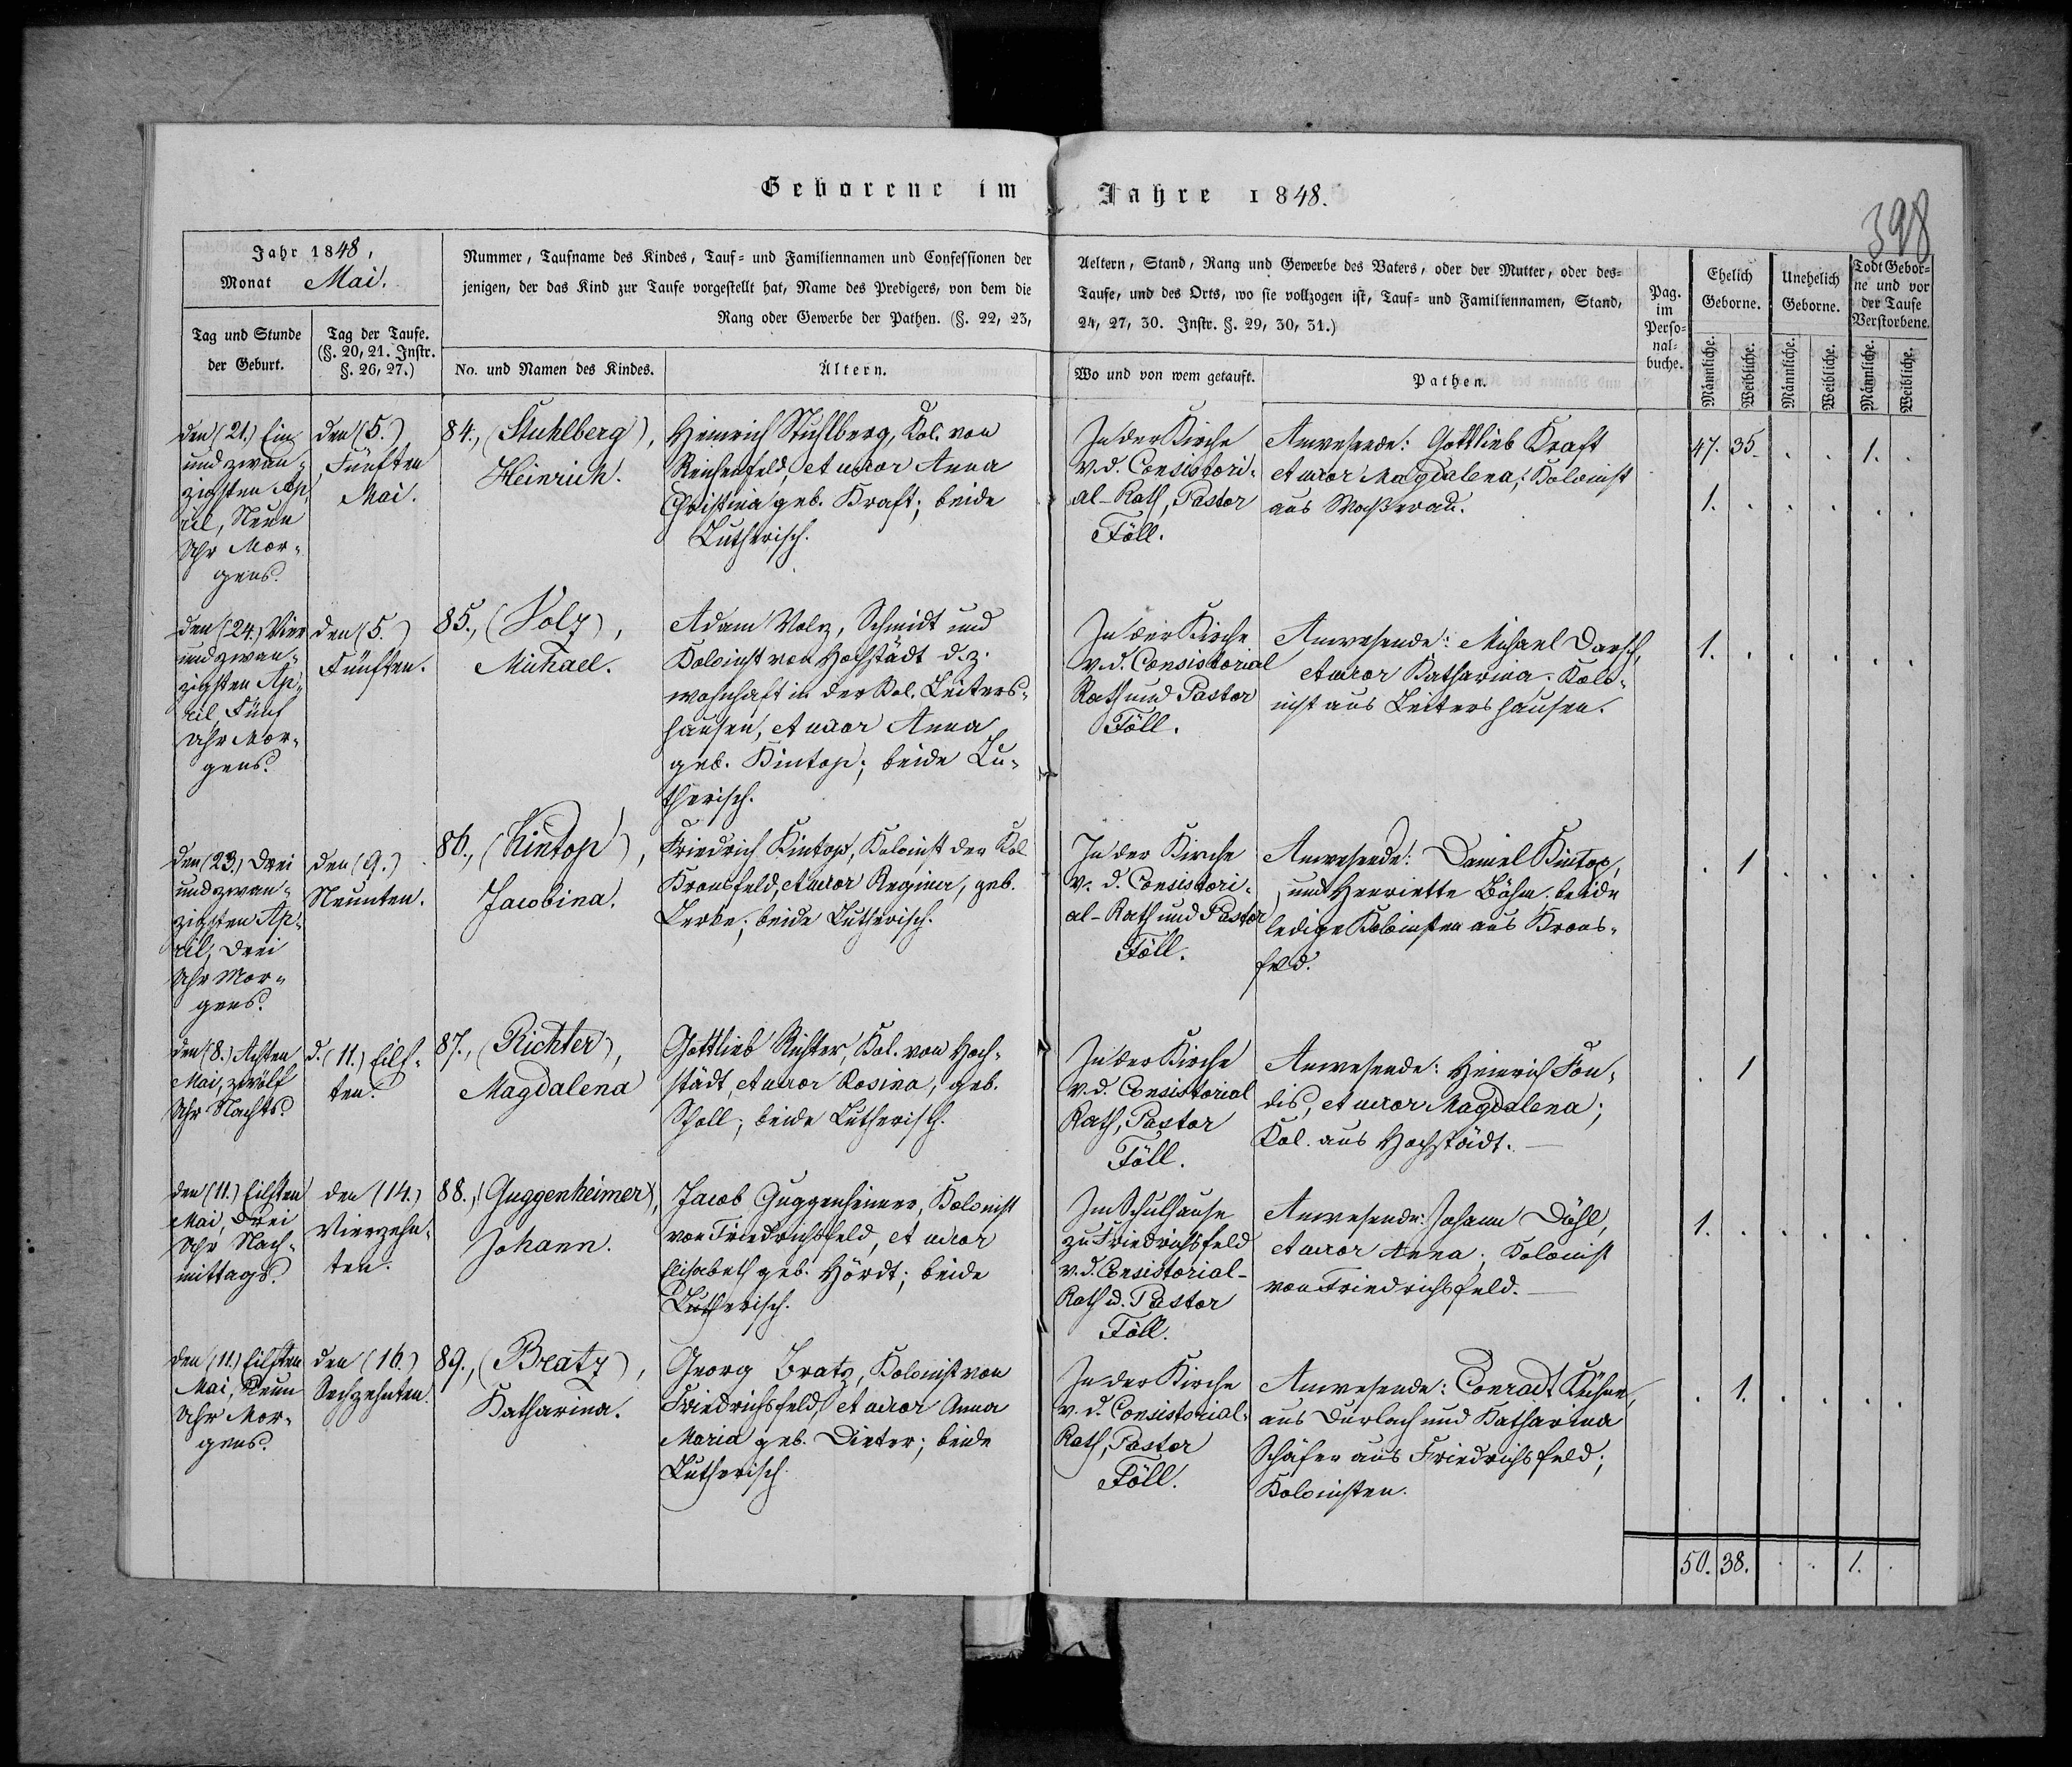 Geborene im Jahre 1848.
398
Jahr 1848,
Monat Mai.
Tag und Stunde
der Geburt.
Tag der Taufe.
(§. 20, 21. Instr.
§. 26, 27.)
Nummer, Taufname des Kindes, Tauf- und Familiennamen und Confessionen der
jenigen, der das Kind zur Taufe vorgestellt hat, Name des Predigers, von dem die
Rang oder Gewerbe der Pathen. (§. 22, 23,
No. und Namen des Kindes.
Ältern.
Aeltern, Stand, Rang und Gewerbe des Vaters, oder der Mutter, oder des-
Taufe, und des Orts, wo sie vollzogen ist, Tauf- und Familiennamen, Stand,
24, 27, 30. Instr. §. 29, 30, 31.)
Wo und von wem getauft.
Pathen.
Pag.
im
Perso-
nal-
buche.
Ehelich
Geborne.
Unehelich
Geborne.
Todt Gebor-
ne und vor
der Taufe
Verstorbene.
Männliche.
Weibliche.
Männliche.
Weibliche.
Männliche.
Weibliche.
den (21.) Ein
und zwan-
zigsten Ap-
ril, Neun
Uhr Mor-
gens.
den (5.)
Fünften
Mai.
84., (Stuhlberg),
Heinrich.
Heinrich Stuhlberg, Kol. von
Reichenfeld, et uxor Anna
Christina geb. Kraft; beide
Lutherisch.
In der Kirche
v. d. Consistori-
al-Rath, Pastor
Föll.
Anwesende: Gottlieb Kraft
et uxor Magdalena; Kolonist
aus Waßerau.
47. 35. . . 1. .
1. . . . . .
den (24.) Vier
und zwan-
zigsten Ap-
ril, Fünf
Uhr Mor-
gens.
den (5.)
Fünften.
85., (Volz),
Michael.
Adam Volz, Schmidt und
Kolonist von Hochstädt d. z.
wohnhaft in der Kol. Leiters-
hausen, et uxor Anna
geb. Kintop; beide Lu-
therisch.
In der Kirche
v. d. Consistorial
Rath und Pastor
Föll.
Anwesende: Michael Darsch,
et uxor Katharina. Kolo-
nist aus Leitershausen.
1. . . . . .
den (23.) Drei
und zwan-
zigsten Ap-
ril, Drei
Uhr Mor-
gens.
den (9.)
Neunten.
86., (Kintop),
Jacobina.
Friedrich Kintop, Kolonist der Kol
Kronsfeld, et uxor Regina, geb.
Lerke; beide Lutherisch.
In der Kirche
v. d. Consistori-
al-Rath und Pastor
Föll.
Anwesende: Daniel Kintop,
und Henriette Böhm. beide
ledige Kolonisten aus Krons-
feld.
. 1 . . . .
den (8.) Achten
Mai, zwölf
Uhr Nachts.
d. (11.) Eilf-
ten.
87., (Richter),
Magdalena
Gottlieb Richter, Kol. von Hoch-
städt, et uxor Rosina, geb.
Scholl; beide Lutherisch.
In der Kirche
v. d. Consistorial
Rath, Pastor
Föll.
Anwesende: Heinrich Fon-
dis, et uxor Magdalena;
Kol. aus Hochstädt.
. 1
den (11.) Eilften
Mai, Drei
Uhr Nach-
mittags.
den (14.)
Vierzehn-
ten.
88., (Guggenheimer),
Johann.
Jacob Guggenheimer, Kolonist
von Friedrichsfeld, et uxor
Elisabeth geb. Hördt; beide
Lutherisch.
Im Schulhause
zu Friedrichsfeld
v. d. Consistorial-
Rath u. Pastor
Föll.
Anwesende: Johann Döhl,
et uxor Anna; Kolonist
von Friedrichsfeld.
1. . . . . .
den (11.) Eilften
Mai, Neun
Uhr Mor-
gens.
den (16.)
Sechzehnten.
89., (Bratz),
Katharina.
Georg Bratz, Kolonist von
Friedrichsfeld, et uxor Anna
Maria geb. Dieter; beide
Lutherisch.
In der Kirche
v. d. Consistorial-
Rath, Pastor
Föll.
Anwesende: Conradt Kühne,
aus Durlach und Katharina
Schäfer aus Friedrichsfeld;
Kolonisten.
. 1. . . . .
50. 38. . . 1. .